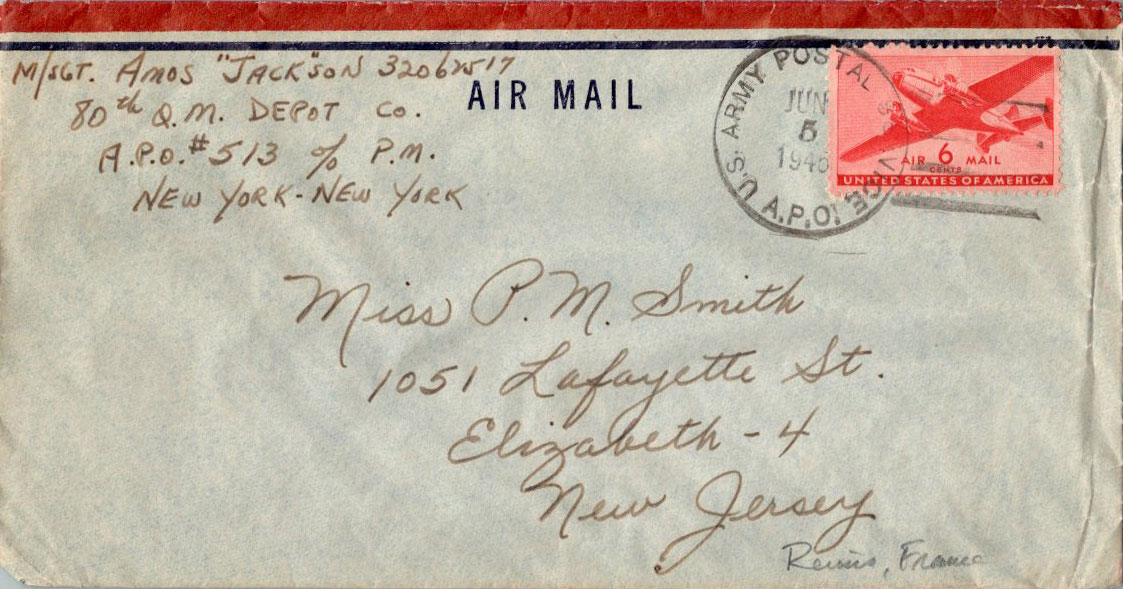 M/SGT. AMOS "JACK"SON 32062517
80th Q.M. DEPOT CO.
A.P.O. #513 c/o P.M.
NEW YORK - NEW YORK
AIR MAIL
U.S. ARMY POSTAL SERVICE
JUN
5
1945
A.P.O.
AIR 6 MAIL
CENTS
UNITED STATES OF AMERICA
Miss P. M. Smith
1051 Lafayette St.
Elizabeth - 4
New Jersey
Reims, France